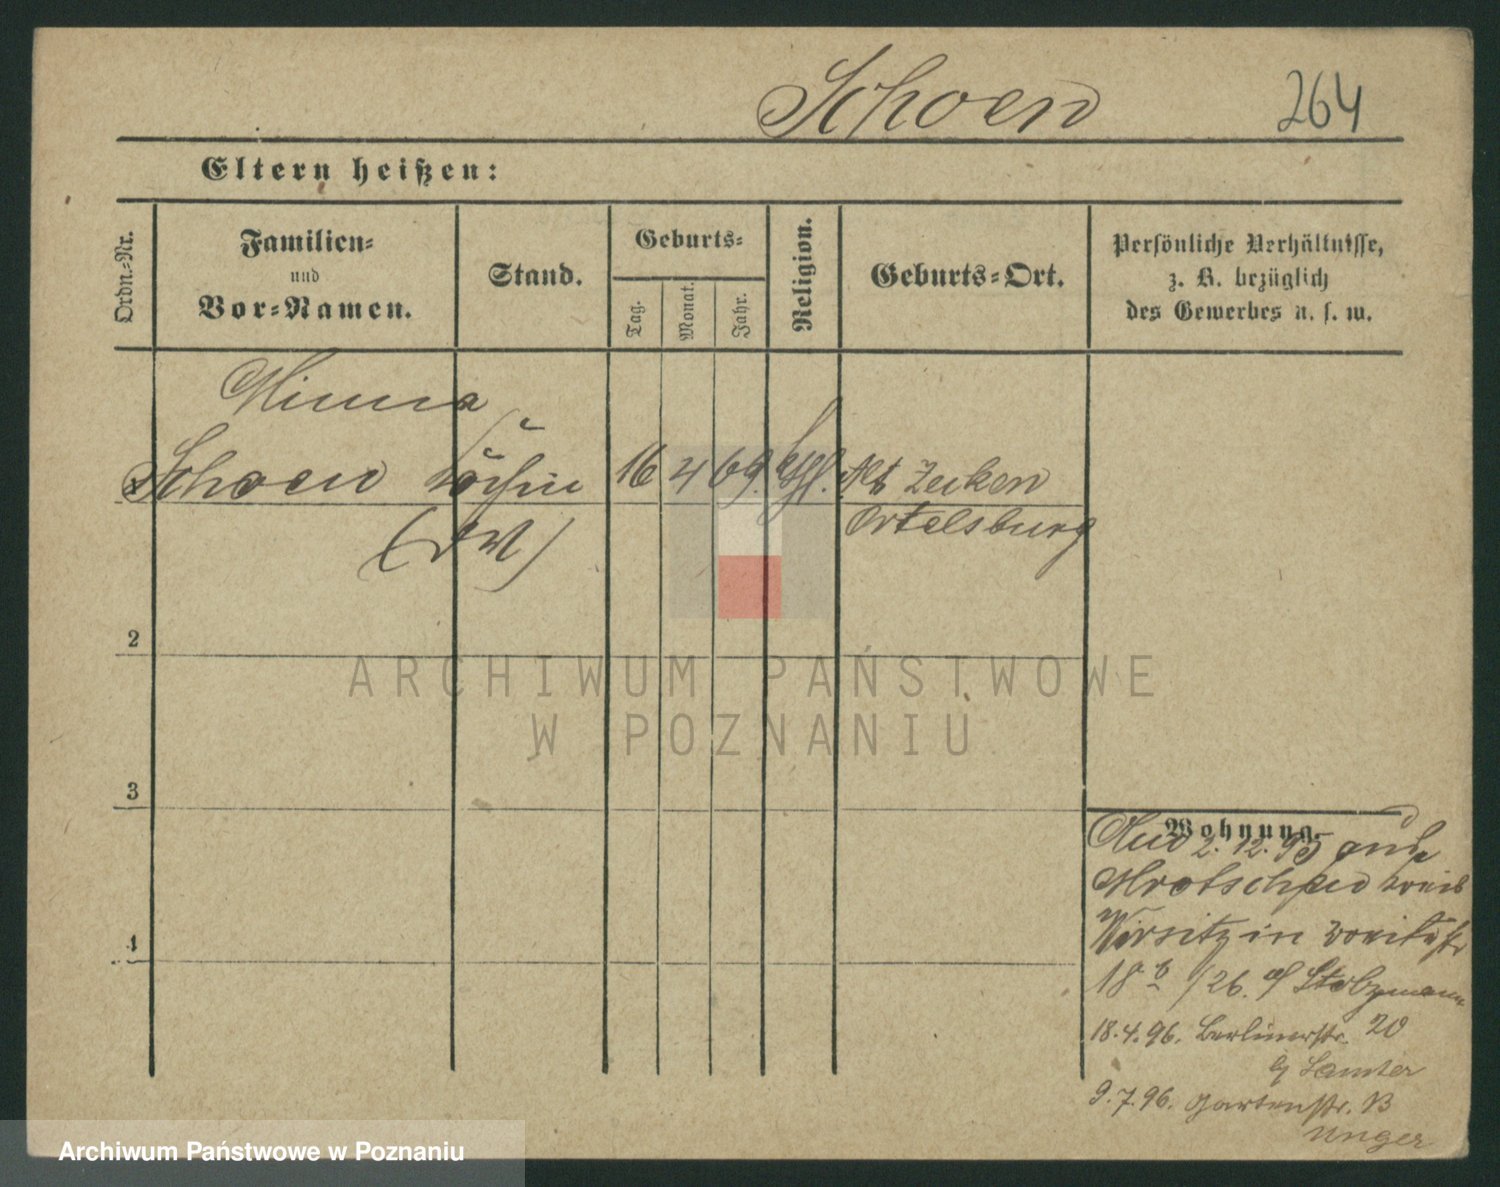 Schoen 264
Eltern heißen:
Ordn.-Nr.
Familien-
und
Vor-Namen.
Stand.
Geburts-
Tag.
Monat.
Jahr.
Religion.
Geburts-Ort.
Persönliche Verhältnisse,
z. B. bezüglich
des Gewerbes u. s. w.
Minna
Schoen Köchin 16 4 69. Alt Zecken
Ortelsburg
2
3
4
ARCHIWUM PAŃSTWOWE
W POZNANIU
Wohnung.
2. 12. 95 aus
Mrotschen Kreis
Wirsitz in Breitestr
18 b /26. Stolzmann
18.4.96. Berlinerstr. 20
b/ Lamter
9.7.96. Gartenstr. 13
Unger
Archiwum Państwowe w Poznaniu